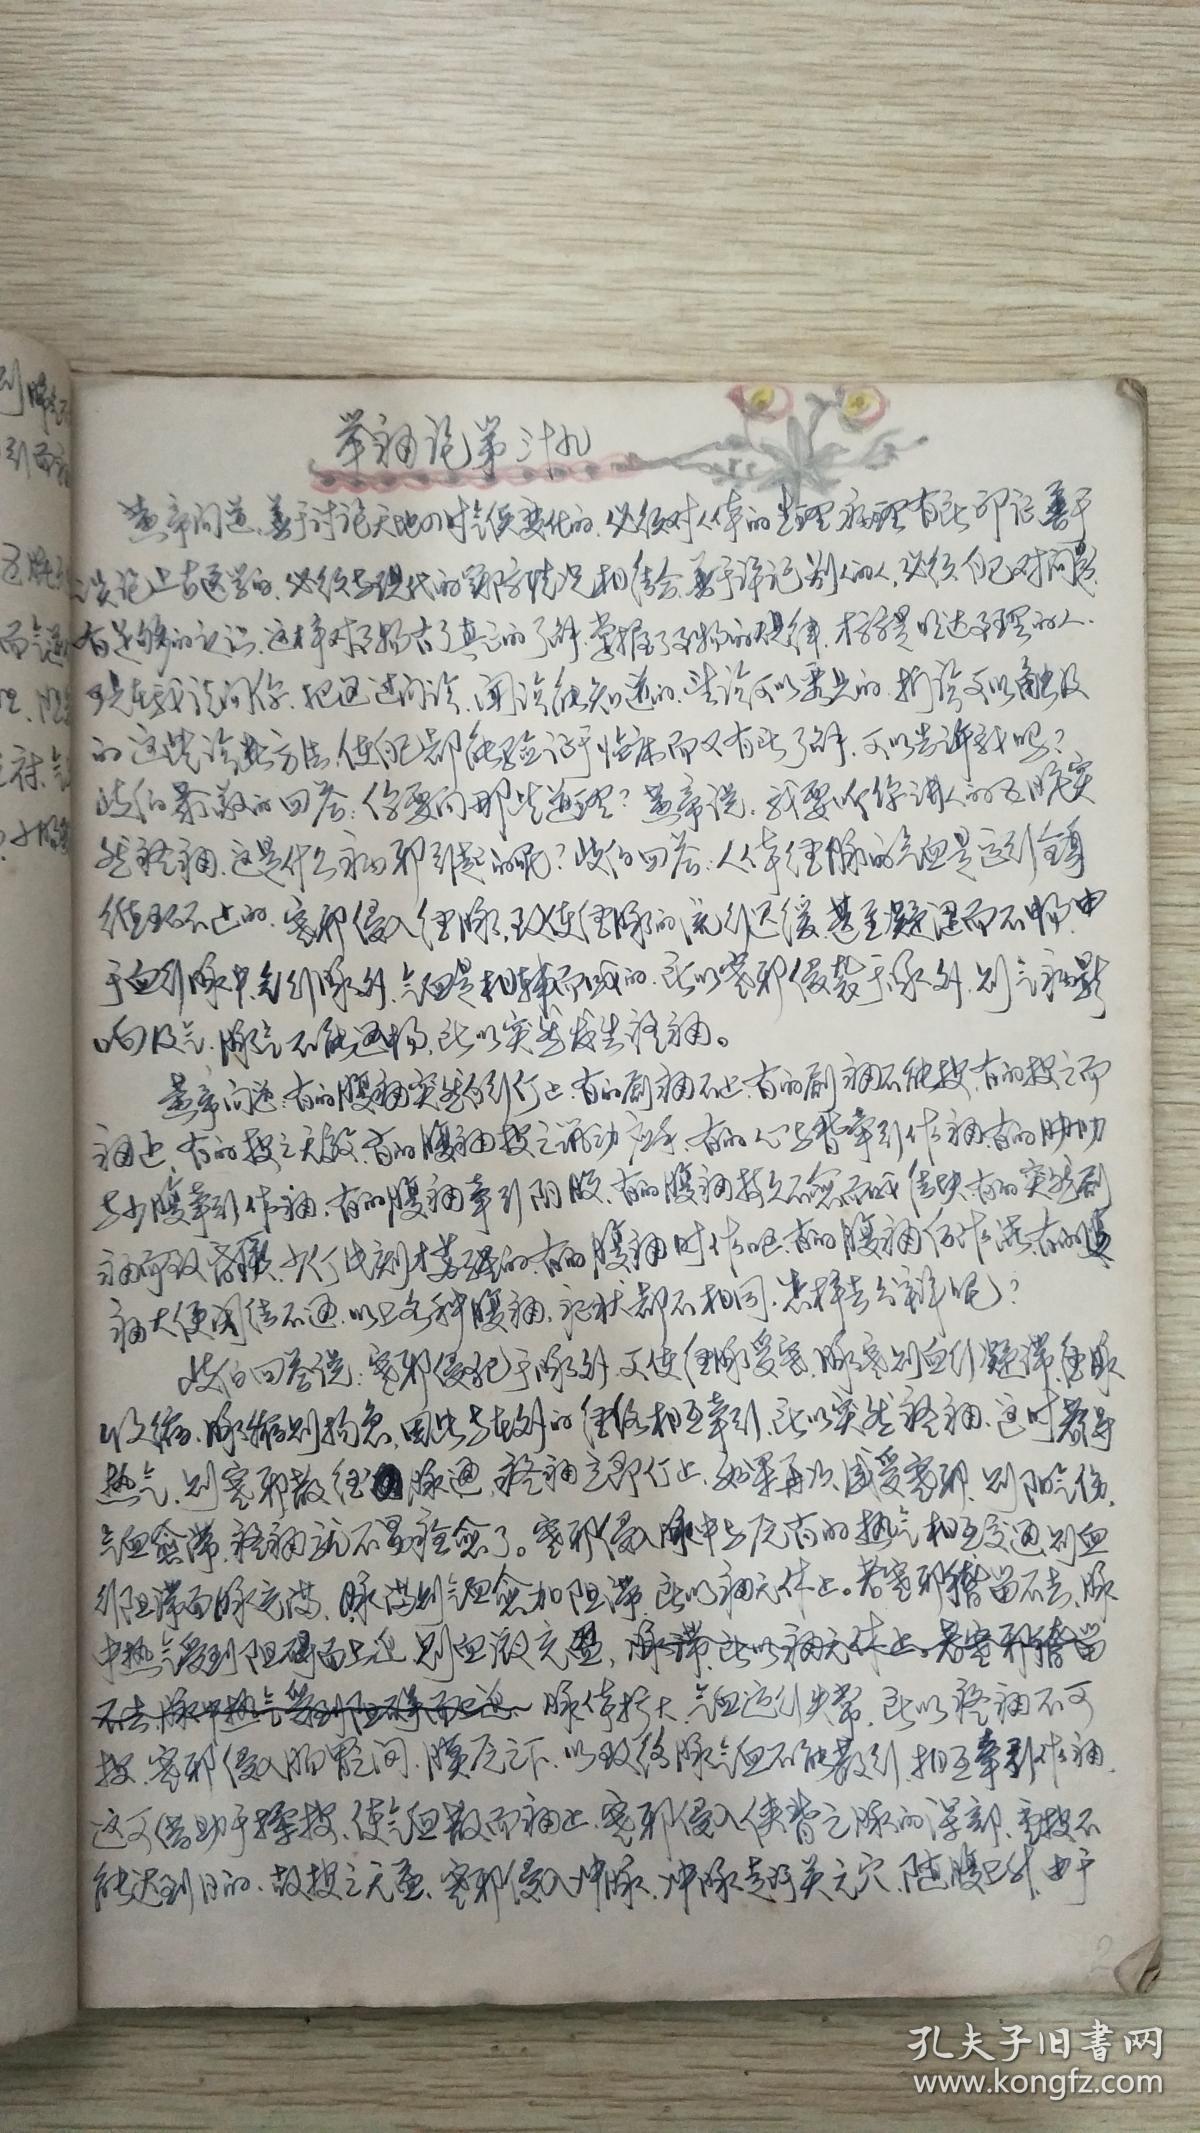 举痛论第三十九
黄帝问道、善于讨论天地四时气候变化的、必须对人体的生理病理有所印证、善于
谈论上古医学的、必须与现代的实际情况相结合、善于评论别人的人、必须自己对问题
有足够的认识、这样对事物有了真正的了解、掌握了事物的规律、才算是明达事理的人、
现在我请问你、把通过问诊、闻诊能知道的、望诊可以看出的、切诊可以触及
的这些诊断方法、使自己都能验证于临床而又有所了解、可以告诉我吗？
岐伯恭敬的回答：你要问那些道理？黄帝说、我要听你讲人的五脏突
然疼痛、这是什么病邪引起的呢？岐伯回答：人体经脉的气血是运行全身
循环不止的、寒邪侵入经脉、致使经脉的流行迟缓、甚至凝涩而不畅、由
于血行脉中、气行脉外、气血是相辅而成的、所以寒邪侵袭于脉外、则气病影
响及气、脉气不能通畅、所以突然发生疼痛。
黄帝问道：有的腹痛突然自行停止、有的剧痛不止、有的剧痛不能按、有的按之而
痛止、有的按之无效、有的腹痛按之跳动应手、有的心与背牵引作痛、有的胁肋
与少腹牵引作痛、有的腹痛牵引阴股、有的腹痛持久不愈而成结块、有的突然剧
痛而致昏厥、少停片刻才苏醒的、有的腹痛时作呕、有的腹痛作泄、有的腹
痛大便闭结不通、以上各种腹痛、症状都不相同、怎样去分辨呢？
岐伯回答说：寒邪侵犯于脉外、又使经脉受寒、脉寒则血行凝滞、经脉
收缩、脉缩则拘急、因此与在外的经络相互牵引、所以突然疼痛、这时若得
热气、则寒邪散经脉通、疼痛立即停止、如果再次感受寒邪、则阳气伤、
气血愈滞、疼痛就不易痊愈了。寒邪侵入脉中与原有的热气相互交通、则血
行阻滞而脉充满、脉满则气血愈加阻滞、所以痛无休止。若寒邪稽留不去、脉
中热气受到阻碍而上逆、则血液充盈，脉滞、所以痛无休止、若寒邪稽留
不去、脉中热气受到阻碍而上逆、脉体扩大、气血运行失常、所以疼痛不可
按、寒邪侵入肠胃之间、膜原之下、以致络脉气血不能散行、相互牵引作痛、
这可借助于揉按、使气血散而痛止、寒邪侵入侠脊之脉的深部、重按不
能达到目的、故按之无益、寒邪侵入冲脉、冲脉起于关元穴、随腹上升、由于
2
孔夫子旧书网
www.kongfz.com